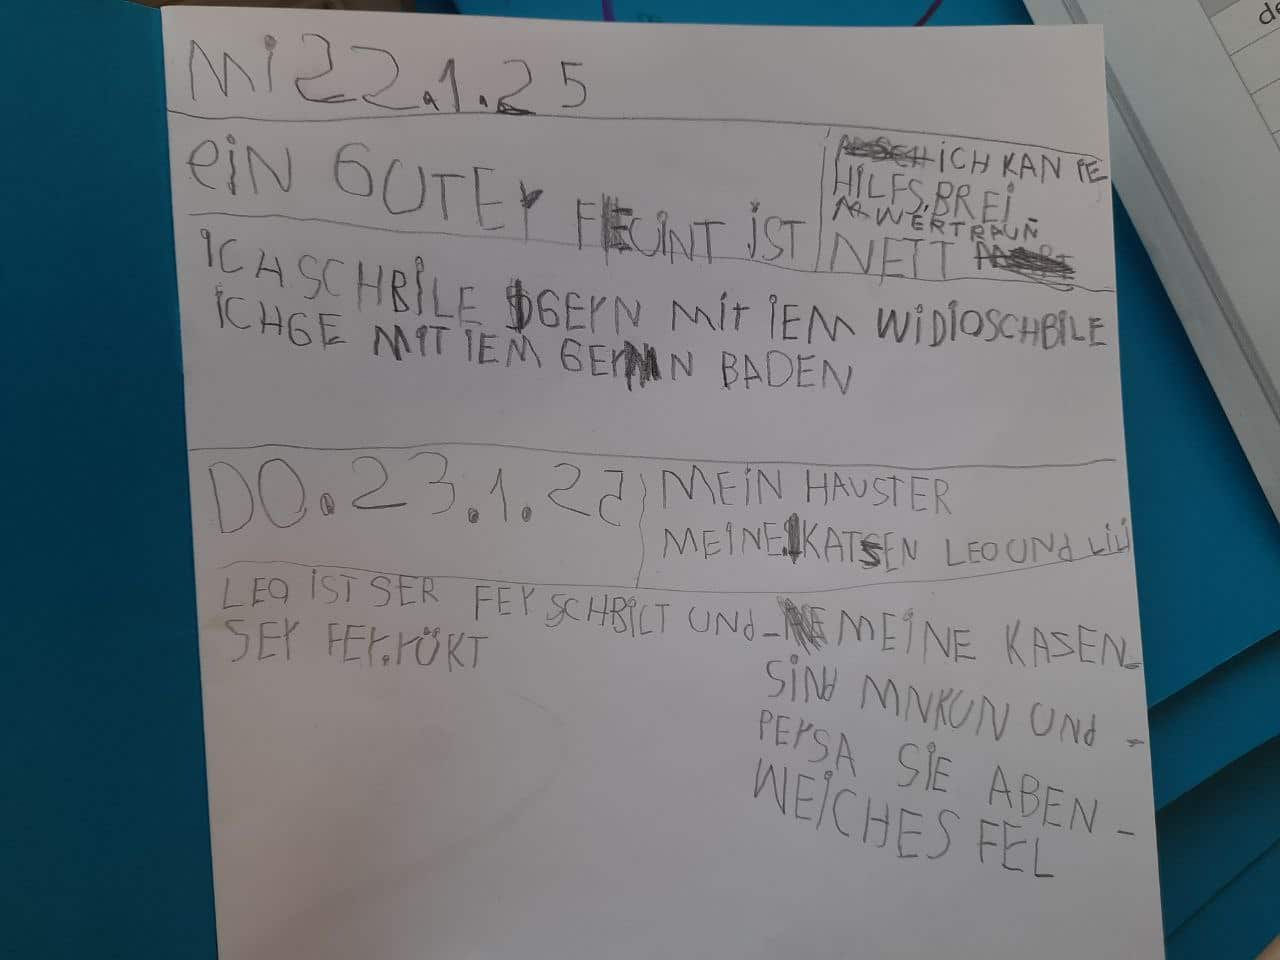 Mi 22.1.25
eiN GUTEr FEUINT iST
ICH KAN IE
HILFS.BREI
WERTRAUN
NETT
iCH SCHBiLE GErN MiT iEM WiDIOSCHBiLE
iCH GE MIT IEM GErN BADEN
DO.23.1.25
MEiN HAUSTER
MEINE KATSEN LEO UNd LiLi
LEO iST SER FErSCHBiLT UNd
SEr FEr.rÜKT
MEiNE KASEN-
SiNd MNKUN UNd -
PErSA SIE ABEN -
WEiCHES FEL